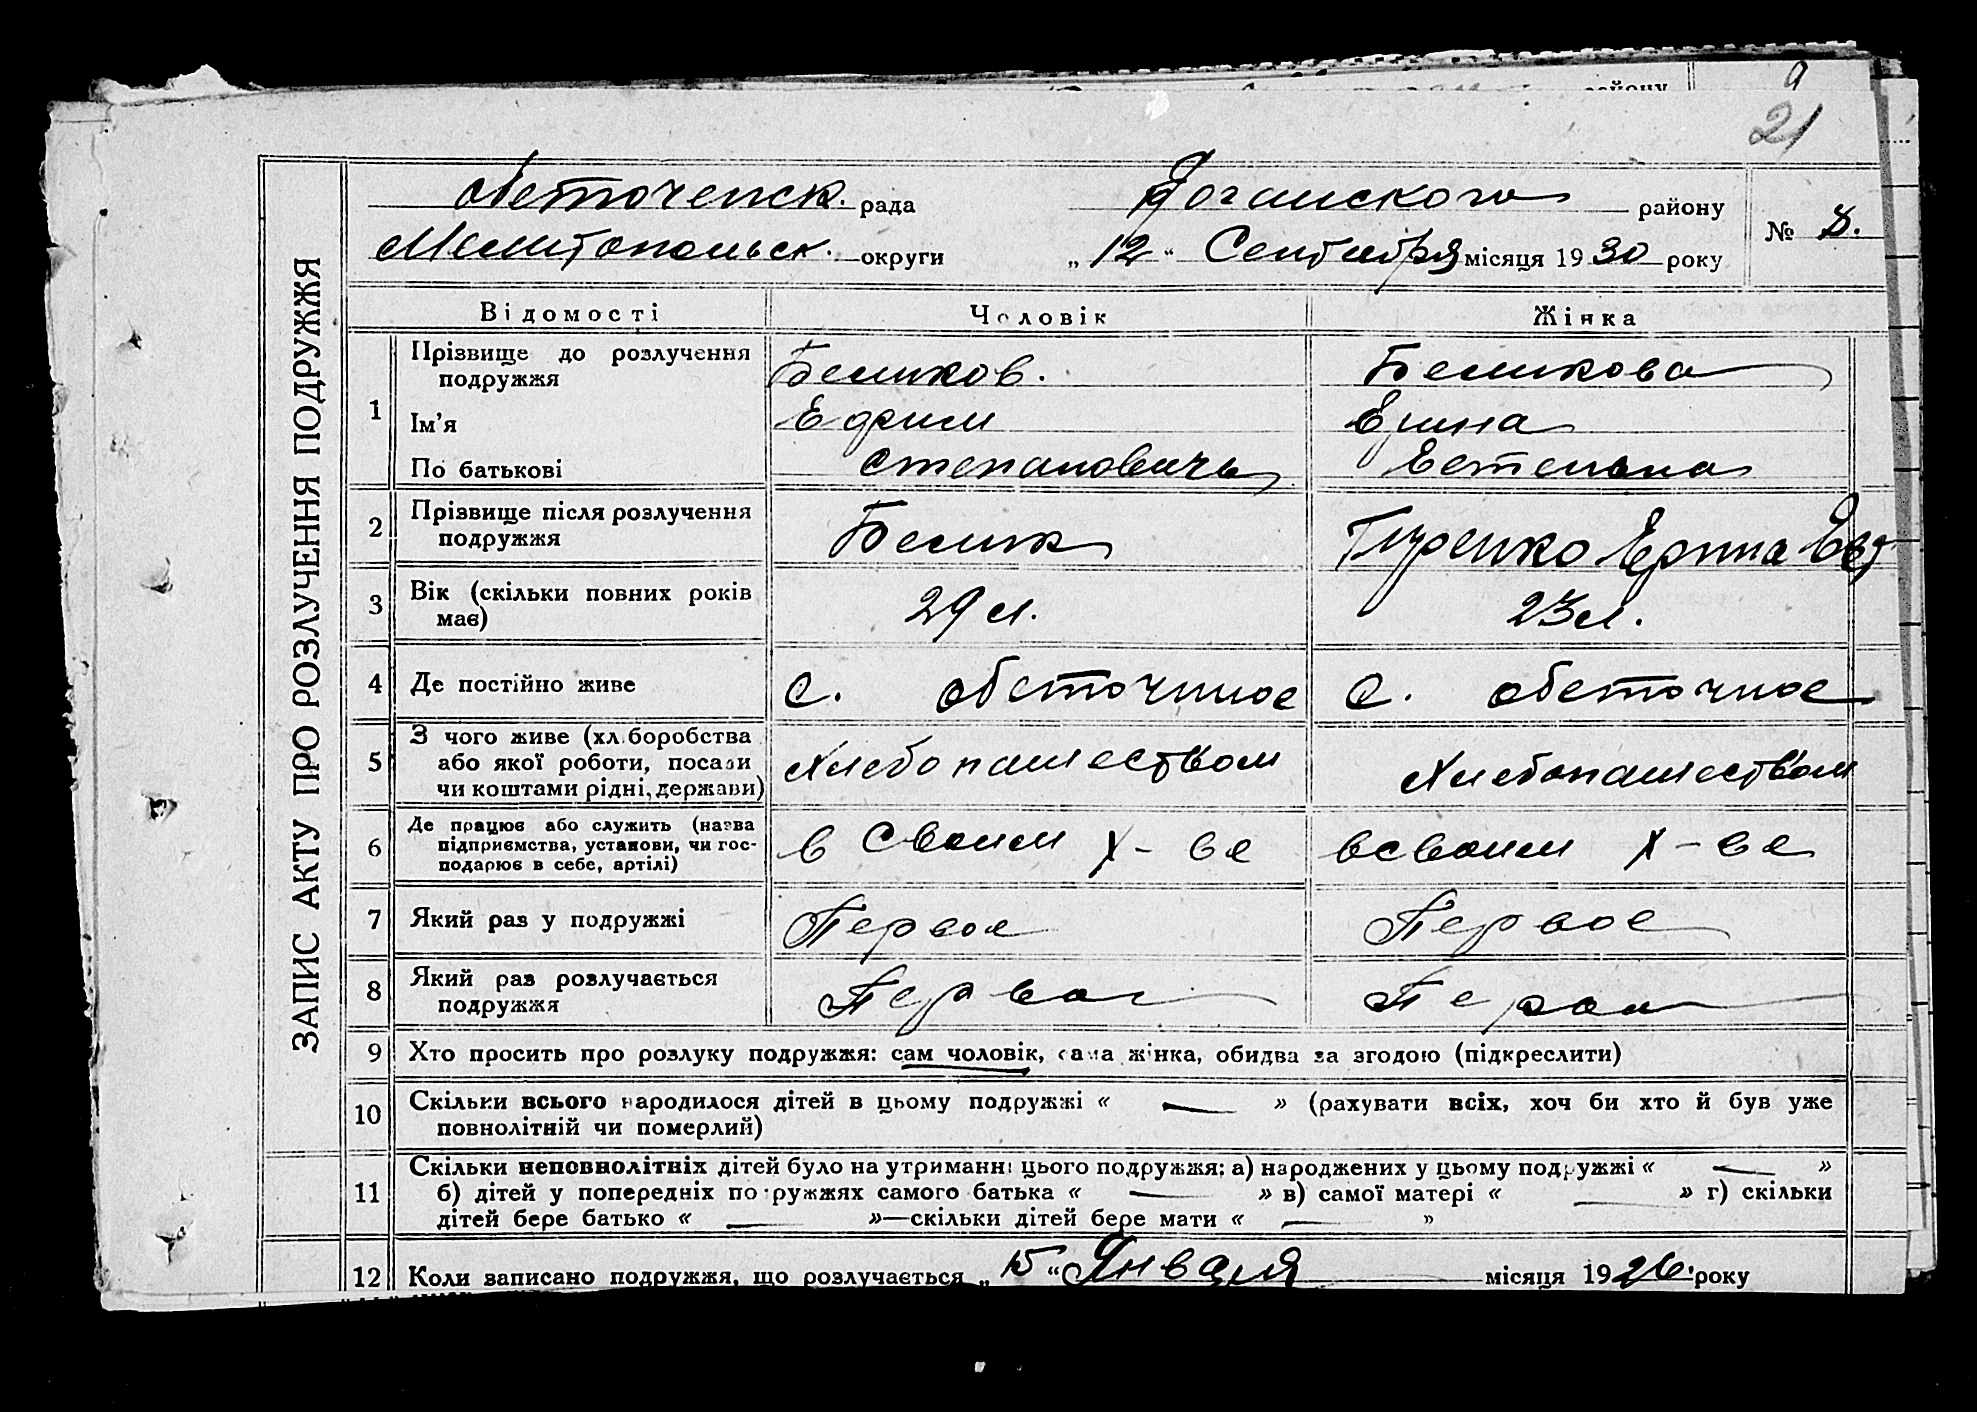 району
9
21
ЗАПИС АКТУ ПРО РОЗЛУЧЕННЯ ПОДРУЖЖЯ
Обеточенск. рада Ноганского району
Мелитопольск. округи „12“ Сентября місяця 1930 року
№ 8.
Відомості Чоловік Жінка
1 Прізвище до розлучення подружжя Беликов. Беликова
Ім’я Ефим Ерина
По батькові Степановичъ
2 Прізвище після розлучення подружжя Белик Гуренко Ерина Евт
3 Вік (скільки повних років має) 29 л. 23 л.
4 Де постійно живе с. Обеточное с. Обеточное
5 З чого живе (хліборобства або якої роботи, посади чи коштами рідні, держави) Хлебопашеством Хлебопашеством
6 Де працює або служить (назва підприємства, установи, чи господарює в себе, артілі) в своим х-ве в своим х-ве
7 Який раз у подружжі Первое Первое
8 Який раз розлучається подружжя Первой
9 Хто просить про розлуку подружжя: сам чоловік, сама жінка, обидва за згодою (підкреслити)
10 Скільки всього народилося дітей в цьому подружжі « — » (рахувати всіх, хоч би хто й був уже
повнолітній чи померлий)
11 Скільки неповнолітніх дітей було на утриманні цього подружжя: а) народжених у цьому подружжі « — »
б) дітей у попередніх подружжях самого батька « — » в) самої матері « — » г) скільки
дітей бере батько « — »—скільки дітей бере мати « — »
12 Коли записано подружжя, що розлучається „15“ Января місяця 1926 року